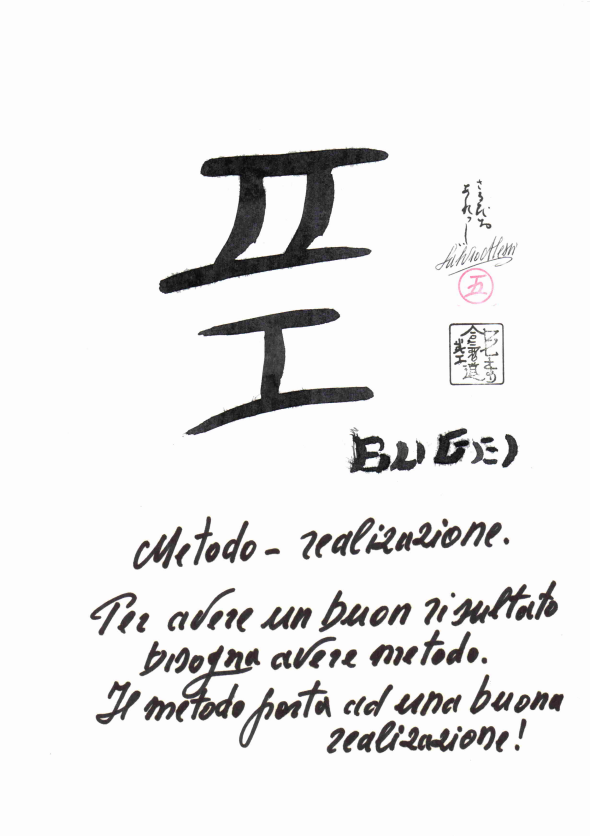 工
五
BUGEI
Metodo - realizzazione.
Per avere un buon risultato
bisogna avere metodo.
Il metodo porta ad una buona
realizzazione!